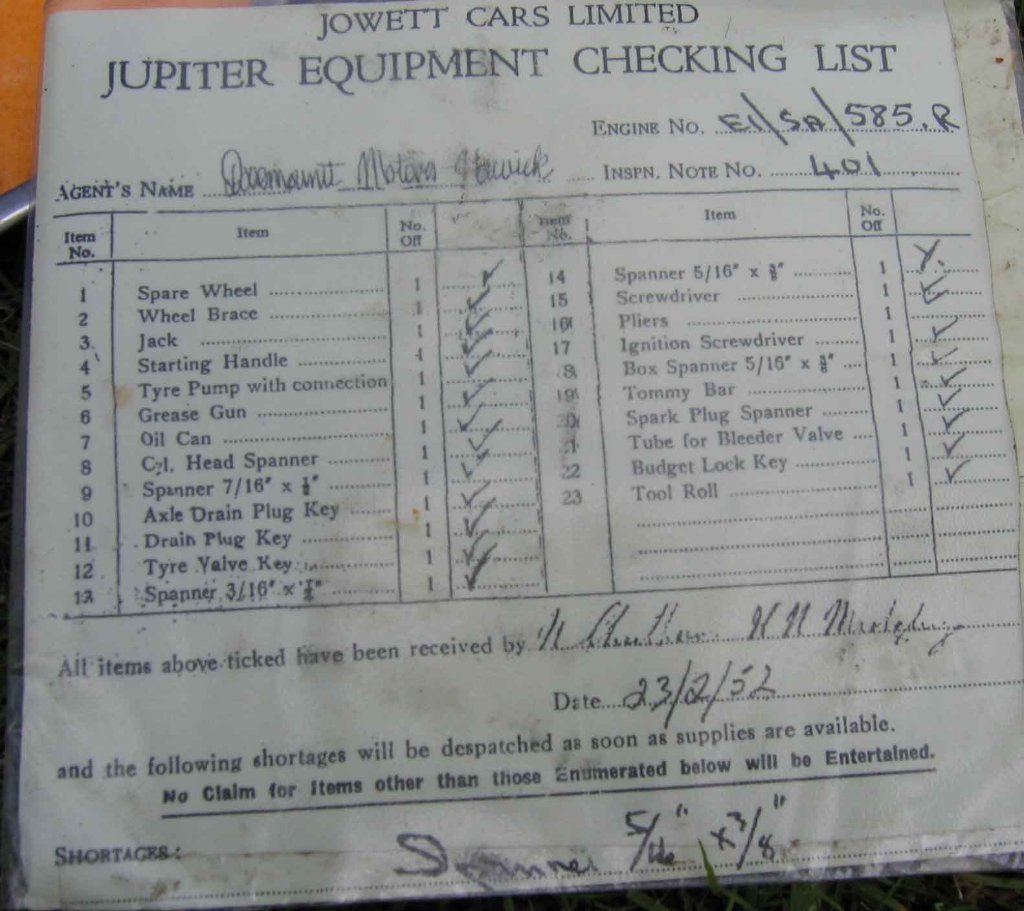 JOWETT CARS LIMITED
JUPITER EQUIPMENT CHECKING LIST
ENGINE No. E1/SA/585.R
AGENT'S NAME Motors INSPN. NOTE No. 401
Item No. Item No. Off Item No. Item No. Off
1 Spare Wheel 1
2 Wheel Brace 1
3 Jack 1
4 Starting Handle 1
5 Tyre Pump with connection 1
6 Grease Gun 1
7 Oil Can 1
8 Cyl. Head Spanner 1
9 Spanner 7/16" x ½" 1
10 Axle Drain Plug Key 1
11 Drain Plug Key 1
12 Tyre Valve Key 1
13 Spanner 3/16" x 1
14 Spanner 5/16" x ⅜" 1
15 Screwdriver 1
16 Pliers 1
17 Ignition Screwdriver 1
18 Box Spanner 5/16" x ⅜" 1
19 Tommy Bar 1
20 Spark Plug Spanner 1
21 Tube for Bleeder Valve 1
22 Budget Lock Key 1
23 Tool Roll 1
All items above ticked have been received by
Date 23/2/52
and the following shortages will be despatched as soon as supplies are available.
No Claim for Items other than those Enumerated below will be Entertained.
SHORTAGES: Spanner 5/16" x 3/8"